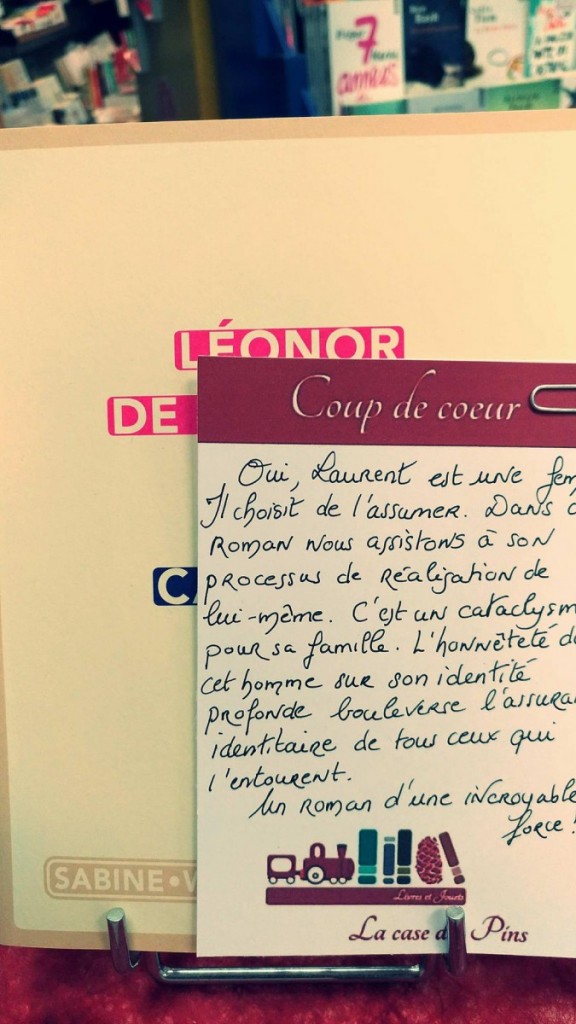 7
amours
LÉONOR
DE
Coup de coeur
Oui, Laurent est une fem
Il choisit de l'assumer. Dans c
Roman nous assistons à son
processus de Réalisation de
lui-même. C'est un cataclysm
pour sa famille. L'honnêteté d
cet homme sur son identité
profonde bouleverse l'assuran
identitaire de tous ceux qui
l'entourent.
Un roman d'une incroyable
force!
SABINE•W
Livres et Jouets
La case d Pins